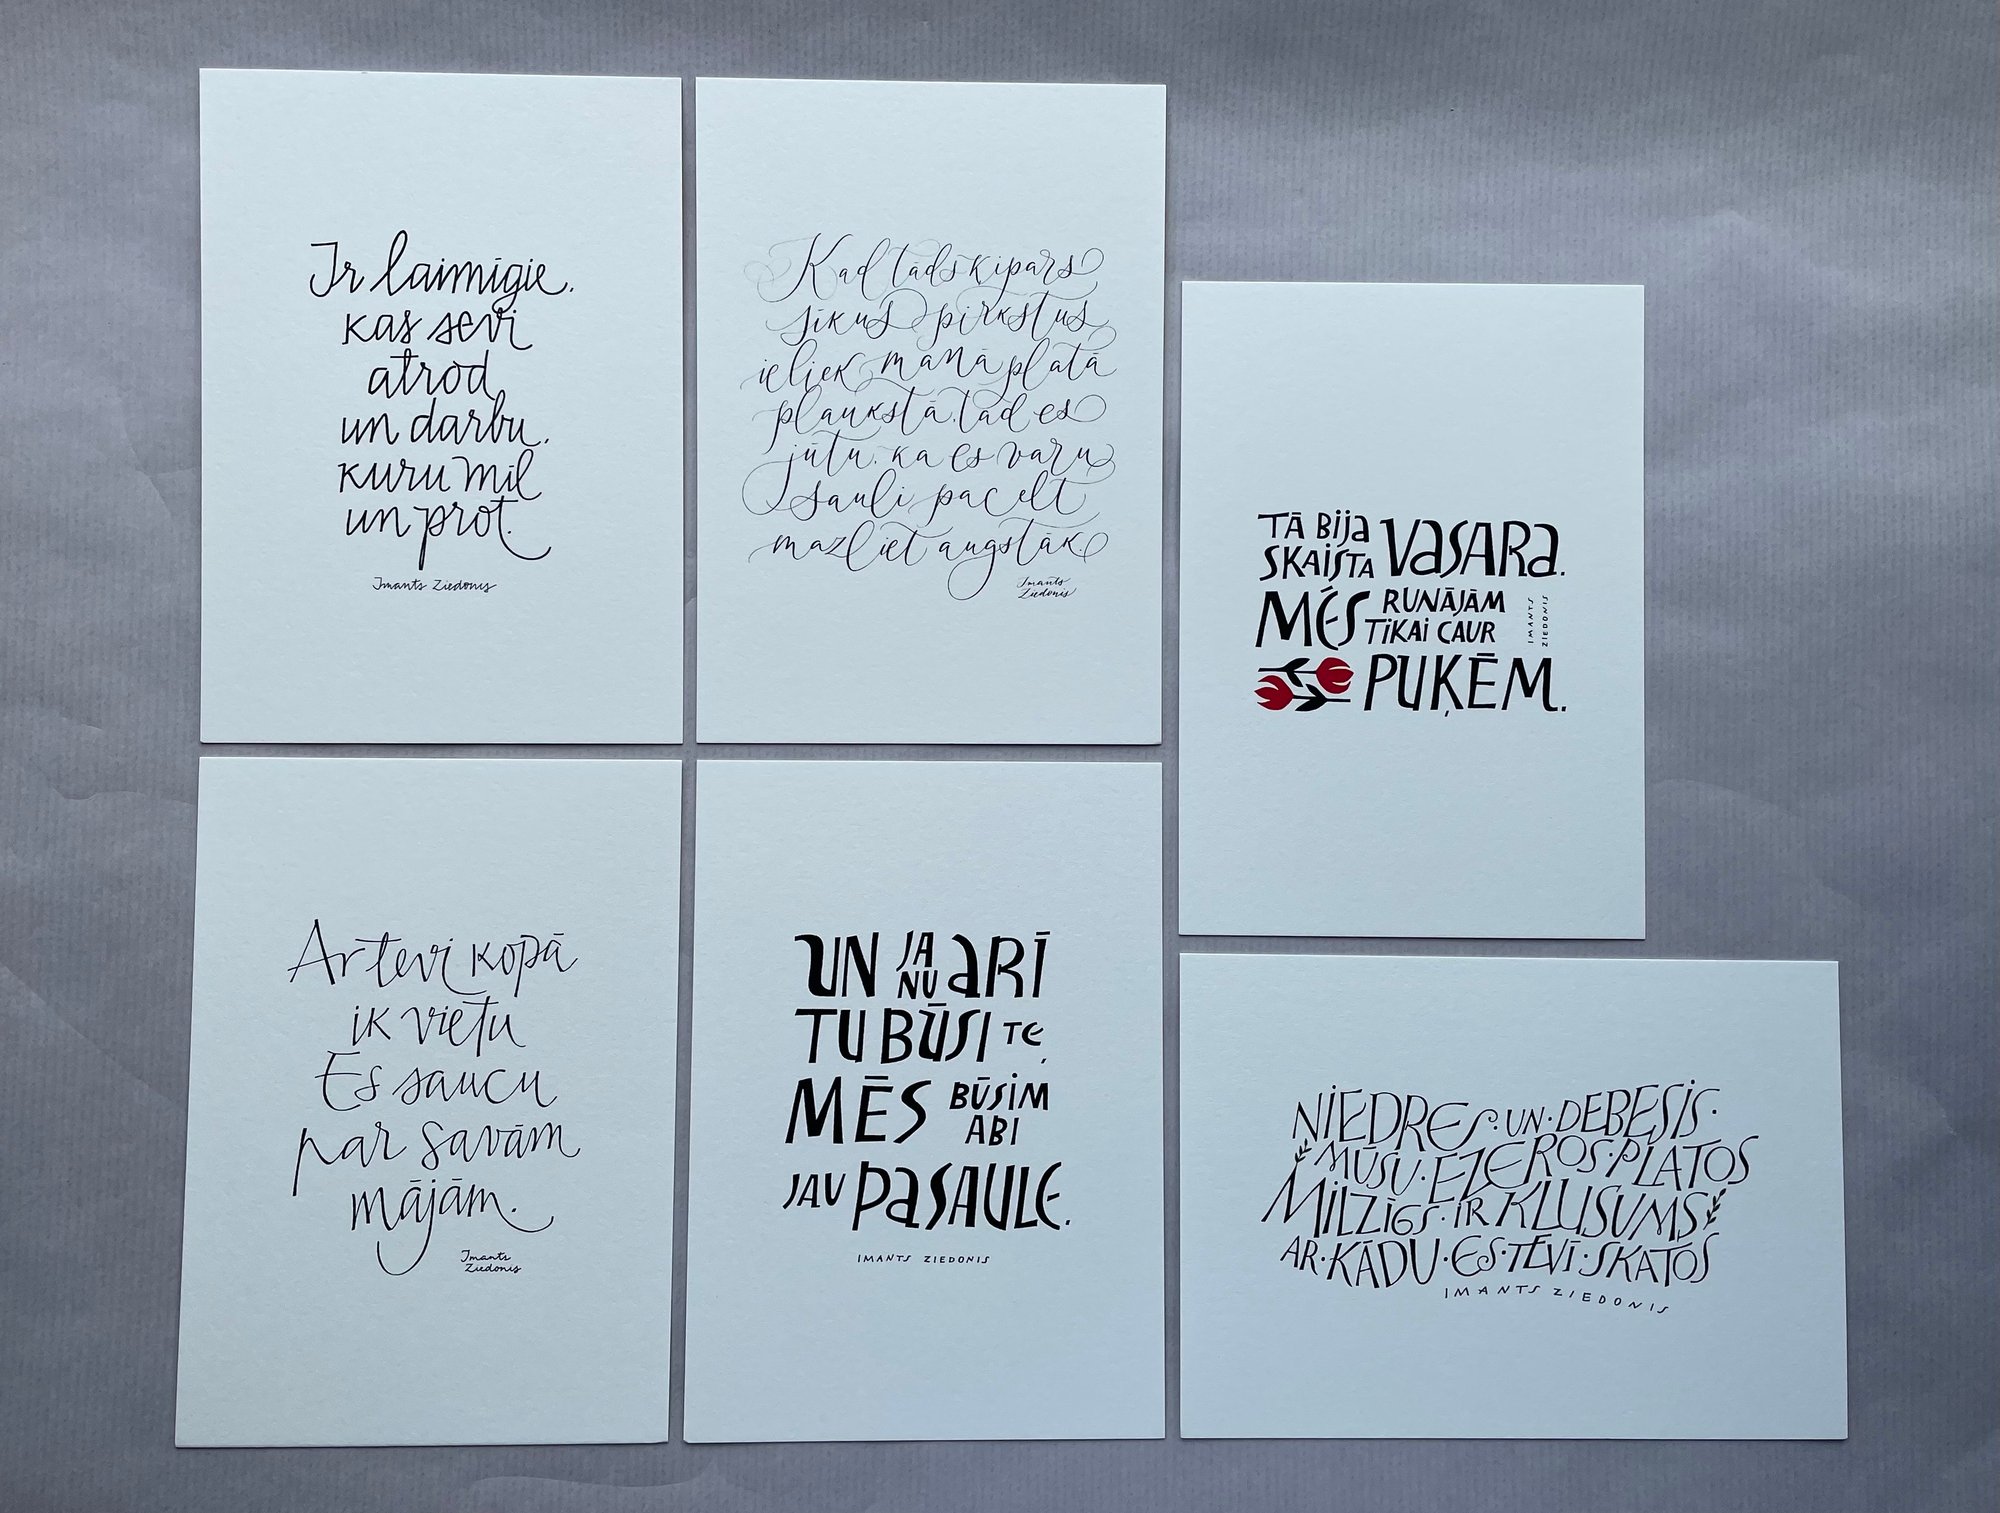 Ir laimīgie,
kas sevi
atrod
un darbu,
kuru mīl
un prot.
Imants Ziedonis
Kad tāds ķipars
sīkus pirkstus
ieliek manā platā
plaukstā, tad es
jūtu, ka es varu
sauli pacelt
mazliet augstāk.
Imants
Ziedonis
TĀ BIJA
SKAISTA VASARA.
MĒS RUNĀJĀM
TIKAI CAUR
PUĶĒM.
IMANTS
ZIEDONIS
Ar tevi kopā
ik vietu
Es saucu
par savām
mājām.
Imants
Ziedonis
UN JA NU ARĪ
TU BŪSI TE,
MĒS BŪSIM
ABI
JAU PASAULE.
IMANTS ZIEDONIS
NIEDRES·UN·DEBESIS·
MŪSU·EZEROS·PLATOS
MILZĪGS·IR KLUSUMS
AR·KĀDU·ES·TEVĪ·SKATOS
IMANTS ZIEDONIS